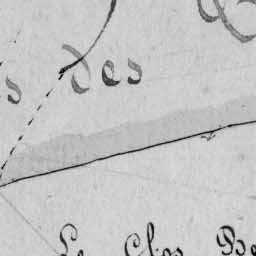 s des
Le Clos Be